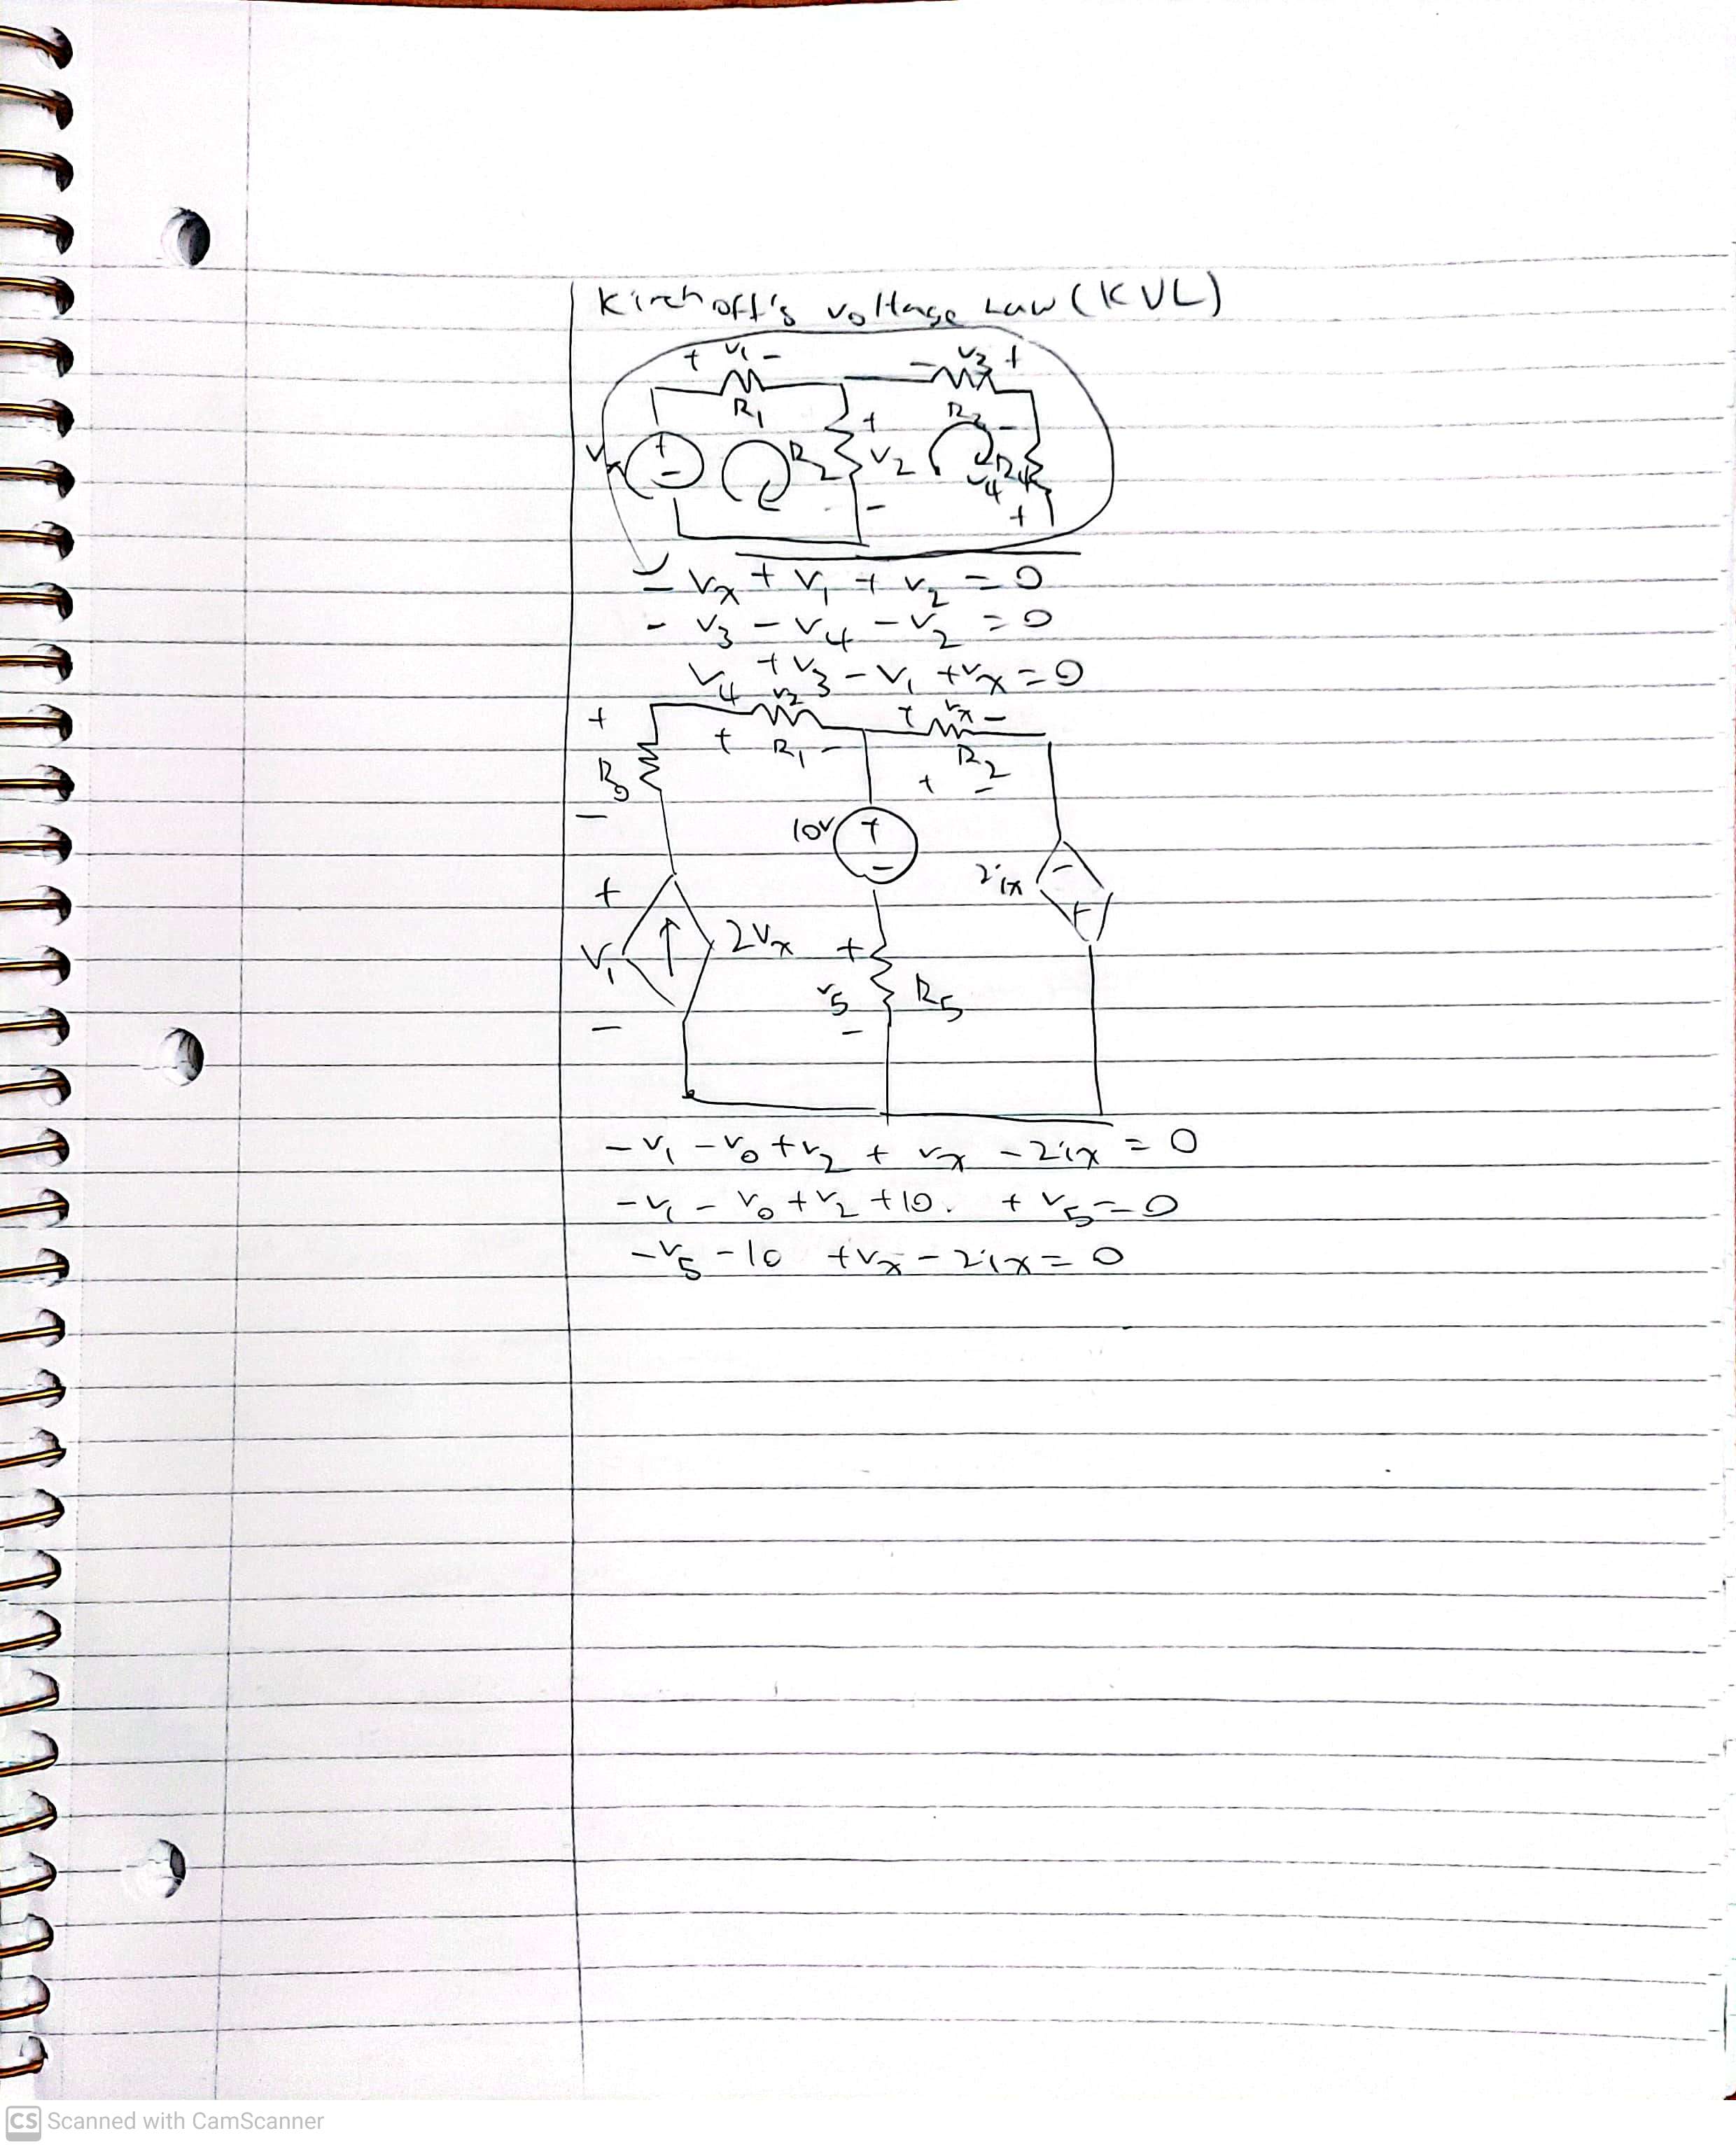 Kirchoff's voltage Law (KVL)
+ v1 - - v3 +
R1 R3
vx + - R2 + v2 - - R4 v4 +
- vx + v1 + v2 = 0
- v3 - v4 - v2 = 0
v4 + v3 - v1 + vx = 0
+ v2 + vx -
+ R1 - R2
R0 + -
-
10v + -
2ix - +
+
v1 2vx +
v5 R5
- -
- v1 - v0 + v2 + vx - 2ix = 0
- v1 - v0 + v2 + 10 . + v5 = 0
- v5 - 10 + vx - 2ix = 0
CS Scanned with CamScanner